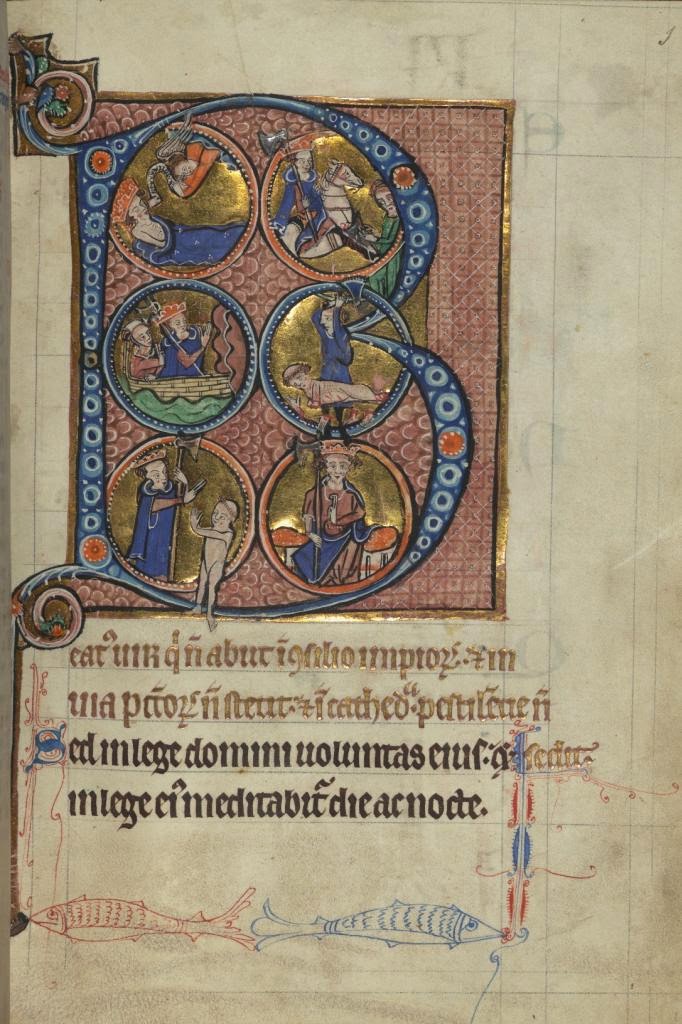 B
eatꝰ uir q̇ n̄ abiit ī ꝯsilio impioꝝ. ⁊ in
uia pctōꝝ n̄ stetit. ⁊ ī cathedᵃ pestilētie n̄
Sed in lege domini uoluntas eius: ⁊ sedit.
in lege eiꝰ meditabit᷑ die ac nocte.